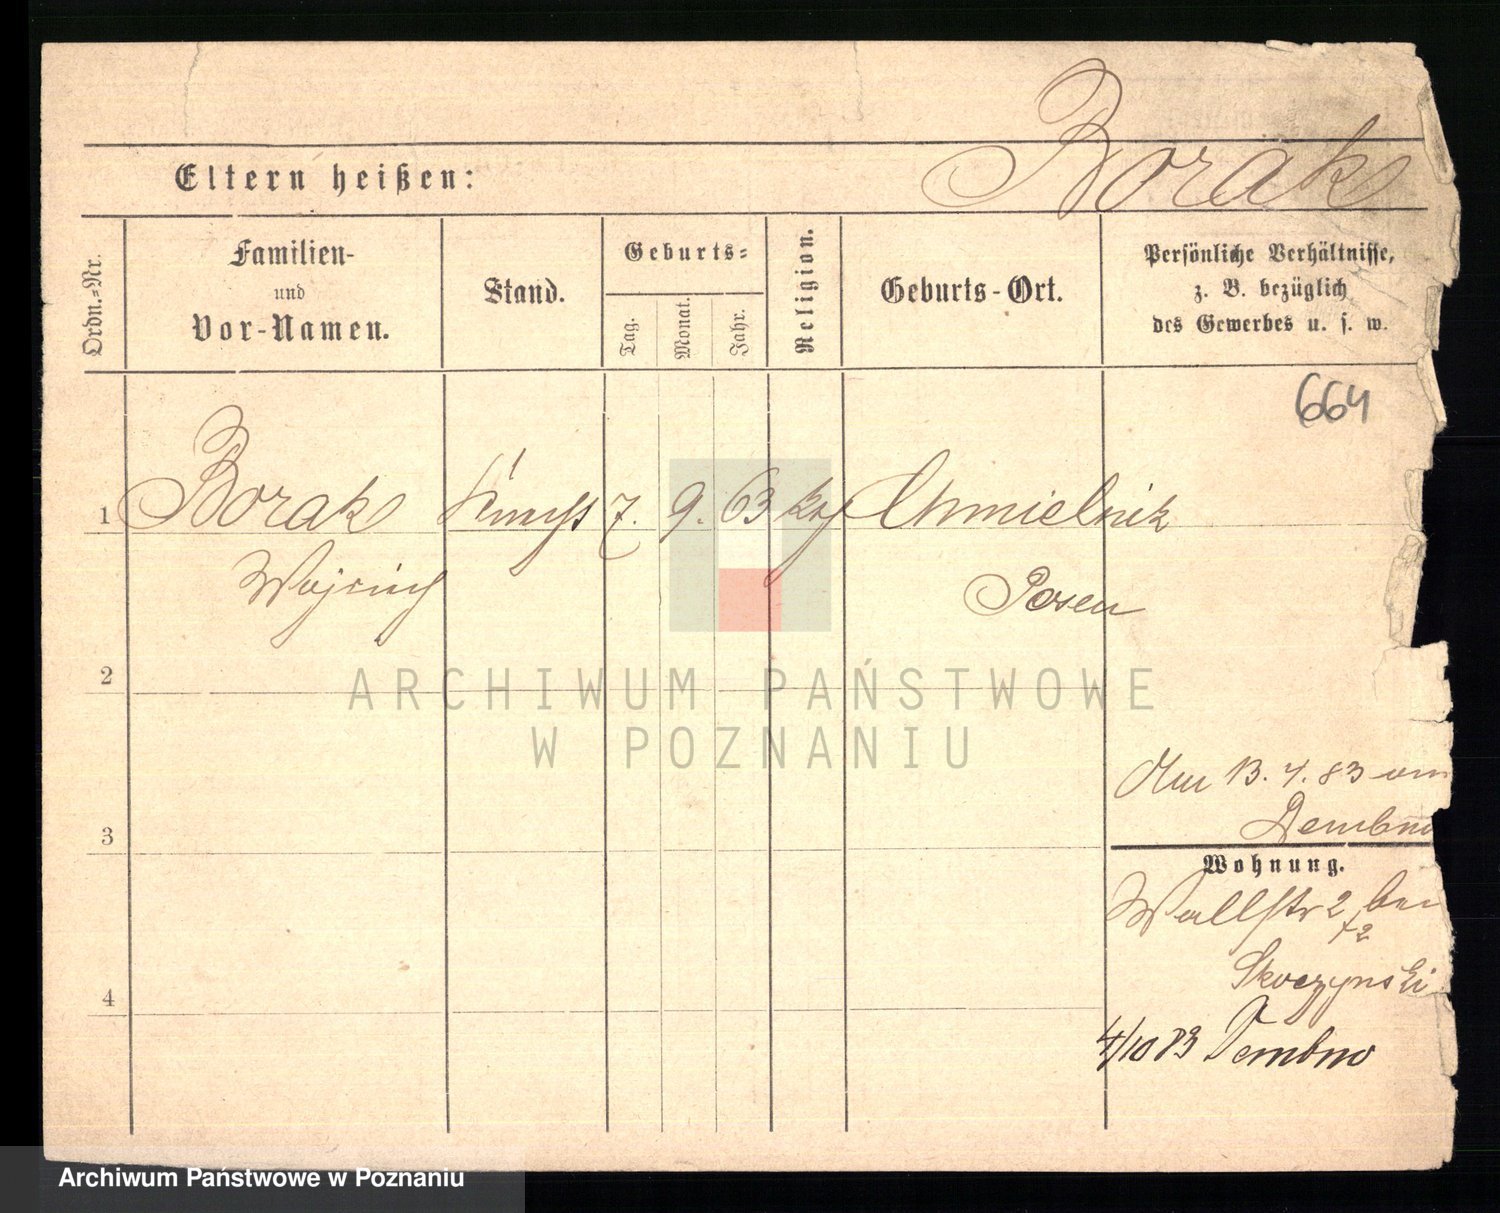 Borak
Eltern heißen:
Ordn.-Nr.
Familien-
und
Vor-Namen.
Stand.
Geburts-
Tag.
Monat.
Jahr.
Religion.
Geburts-Ort.
Persönliche Verhältnisse,
z. B. bezüglich
des Gewerbes u. s. w.
664
1 Borak 7. 9. 63 Chmielnik
Wojciech
Posen
2
3
4
ARCHIWUM PAŃSTWOWE
W POZNANIU
13. 4. 83
Dembno
Wohnung.
Wallstr 2 bei
Skoczynski
4/10 83 Dembno
Archiwum Państwowe w Poznaniu